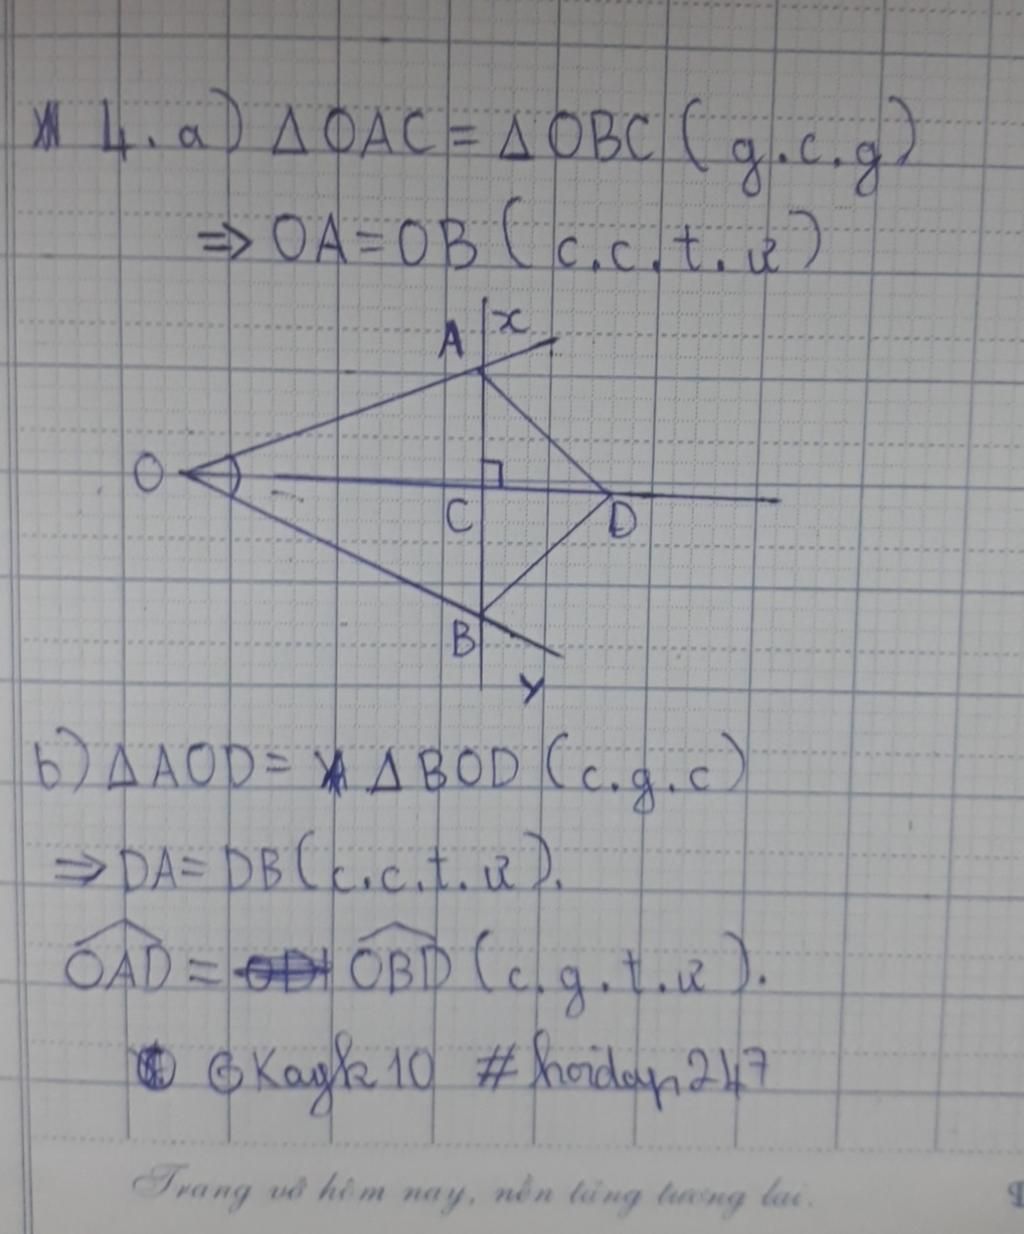 4. a) ΔOAC = ΔOBC (g.c.g)
⇒ OA = OB (c.c.t.ư)
A x
O
C D
B
y
b) ΔAOD = ΔBOD (c.g.c)
⇒ DA = DB (c.c.t.ư).
OAD = OBD (c.g.t.ư).
Kagk10 #hoidap247
Trang vở hôm nay, nền tảng tương lai.